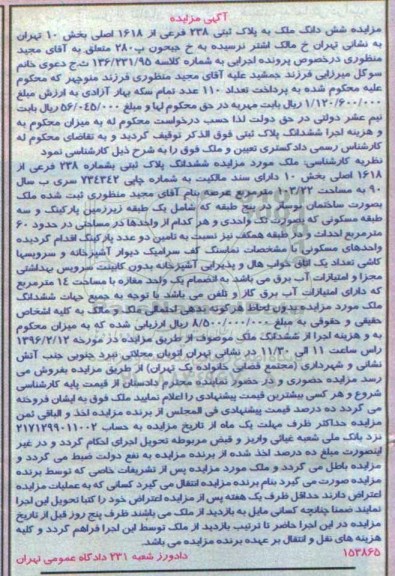 آگهی مزایده
مزایده شش دانگ ملک به پلاک ثبتی ۲۳۸ فرعی از ۱۶۱۸ اصلی بخش ۱۰ تهران
به نشانی تهران خ مالک اشتر نرسیده به خ جیحون پ۲۸۰ متعلق به آقای مجید
منظوری درخصوص پرونده اجرایی به شماره کلاسه ۱۳۶/۲۳۱/۹۵ ت.ج دعوی خانم
سوگل میرزایی فرزند جمشید علیه آقای مجید منظوری فرزند منوچهر که محکوم
علیه محکوم شده به پرداخت تعداد ۱۱۰ عدد تمام سکه بهار آزادی به ارزش مبلغ
۱/۱۲۰/۶۰۰/۰۰۰ ریال بابت مهریه در حق محکوم لها و مبلغ ۵۶/۰۴۵/۰۰۰ ریال بابت
نیم عشر دولتی در حق دولت لذا حسب درخواست محکوم له به میزان محکوم به
و هزینه اجرا ششدانگ پلاک ثبتی فوق الذکر توقیف گردید و به تقاضای محکوم له
کارشناس رسمی دادگستری تعیین و ملک فوق را به شرح ذیل کارشناسی نمود
نظریه کارشناسی: ملک مورد مزایده ششدانگ پلاک ثبتی بشماره ۲۳۸ فرعی از
۱۶۱۸ اصلی بخش ۱۰ دارای سند مالکیت به شماره چاپی ۷۳۴۳۴۲ سری ب سال
۹۰ به مساحت ۱۰۳/۲۲ مترمربع عرصه بنام آقای مجید منظوری ثبت شده ملک
بصورت ساختمان نوساز در پنج طبقه که شامل یک طبقه زیرزمین پارکینگ و سه
طبقه مسکونی که بصورت تک واحدی و هر کدام از واحدها در مساحتی در حدود ۶۰
مترمربع احداث و در طبقه همکف نیز نسبت به تامین دو عدد پارکینگ اقدام گردیده
واحدهای مسکونی با مشخصات نماسنگ کف سرامیک دیوار آشپزخانه و سرویسها
کاشی تعداد یک اتاق خواب هال و پذیرایی آشپزخانه بدون کابینت سرویس بهداشتی
مجزا و امتیازات آب برق می باشد به انضمام یک واحد مغازه با مساحت ۱۴ مترمربع
که دارای امتیازات آب برق گاز و تلفن می باشد با توجه به جمیع جهات ششدانگ
ملک مورد مزایده بدون لحاظ هرگونه بدهی احتمالی ملک و مالک به کلیه اشخاص
حقیقی و حقوقی به مبلغ ۸/۵۰۰/۰۰۰/۰۰۰ ریال ارزیابی شده که به میزان محکوم
به و هزینه اجرا از ششدانگ ملک موصوف از طریق مزایده در مورخه ۱۳۹۶/۲/۱۲
راس ساعت ۱۱ الی ۱۱/۳۰ در نشانی تهران اتوبان محلاتی نبرد جنوبی جنب آتش
نشانی و شهرداری (مجتمع قضایی خانواده یک تهران) از طریق مزایده بفروش می
رسد مزایده حضوری و در حضور نماینده محترم دادستان از قیمت پایه کارشناسی
شروع و هر کسی بیشترین قیمت پیشنهادی را اعلام نمایید ملک فوق به ایشان فروخته
می گردد ده درصد قیمت پیشنهادی فی المجلس از برنده مزایده اخذ و الباقی ثمن
مزایده حداکثر ظرف مهلت یک ماه از تاریخ مزایده به حساب ۲۱۷۱۲۹۹۰۱۱۰۰۲
نزد بانک ملی شعبه غیاثی واریز و قبض مربوطه تحویل اجرای احکام گردد و در غیر
اینصورت مبلغ ده درصد اخذ شده از برنده مزایده به نفع دولت ضبط می گردد و
مزایده باطل می گردد و ملک مورد مزایده پس از تشریفات خاصی که توسط برنده
مزایده صورت می گیرد بنام برنده مزایده انتقال می گیرد کسانی که به عملیات مزایده
اعتراض دارند حداقل ظرف یک هفته پس از مزایده اعتراض خود را کتبا تحویل این اجرا
نمایند ضمنا چنانچه کسانی مایل به بازدید از ملک می باشند ظرف پنج روز قبل از تاریخ
مزایده در این اجرا حاضر تا ترتیب بازدید از ملک توسط این اجرا فراهم گردد و کلیه
هزینه های نقل و انتقال بر عهده برنده مزایده می باشد.
۱۵۳۸۶۵
دادورز شعبه ۲۳۱ دادگاه عمومی تهران